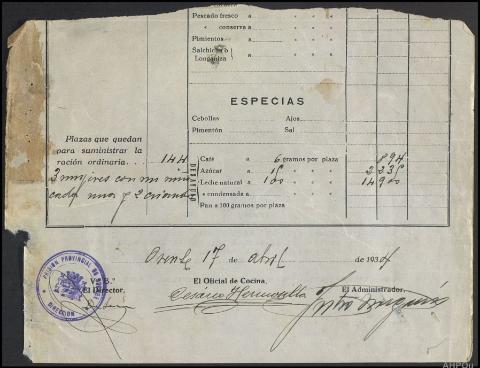 Pescado fresco a
" conserva a " "
Pimientos . a " "
Salchicha o
Longaniza } a " "
ESPECIAS
Cebollas Ajos
Pimentón Sal
Plazas que quedan
para suministrar la
ración ordinaria. . . 144
2 mujeres con un niño
cada una y 2 criando
DESAYUNO
Café a 6 gramos por plaza 894
Azúcar a 15 " " " 2235
Leche natural a 100 " " " 14900
" condensada a " " "
Pan a 100 gramos por plaza
Orense 17 de abril de 1934
PRISION PROVINCIAL DE
DIRECCION
V.º B.º
El Director,
El Oficial de Cocina,
El Administrador,
Cesáreo Hermosilla
AHPOu